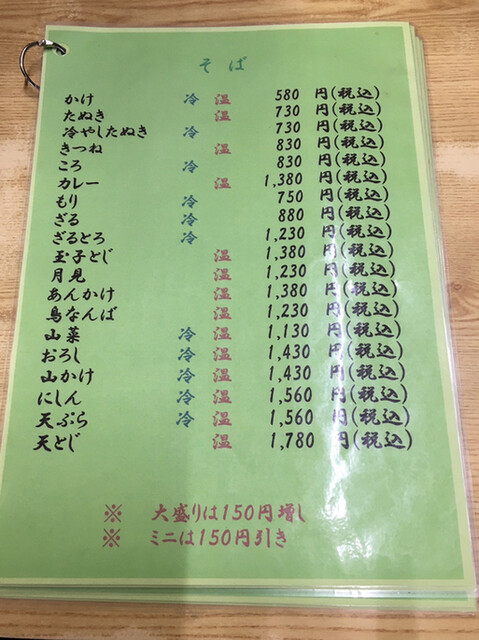 そば
かけ 冷 温 580 円(税込)
たぬき 温 730 円(税込)
冷やしたぬき 冷 730 円(税込)
きつね 温 830 円(税込)
ころ 冷 830 円(税込)
カレー 温 1,380 円(税込)
もり 冷 750 円(税込)
ざる 冷 880 円(税込)
ざるとろ 冷 1,230 円(税込)
玉子とじ 温 1,380 円(税込)
月見 温 1,230 円(税込)
あんかけ 温 1,380 円(税込)
鳥なんば 温 1,230 円(税込)
山菜 冷 温 1,130 円(税込)
おろし 冷 温 1,430 円(税込)
山かけ 冷 温 1,430 円(税込)
にしん 冷 温 1,560 円(税込)
天ぷら 冷 温 1,560 円(税込)
天とじ 温 1,780 円(税込)
※ 大盛りは150円増し
※ ミニは150円引き